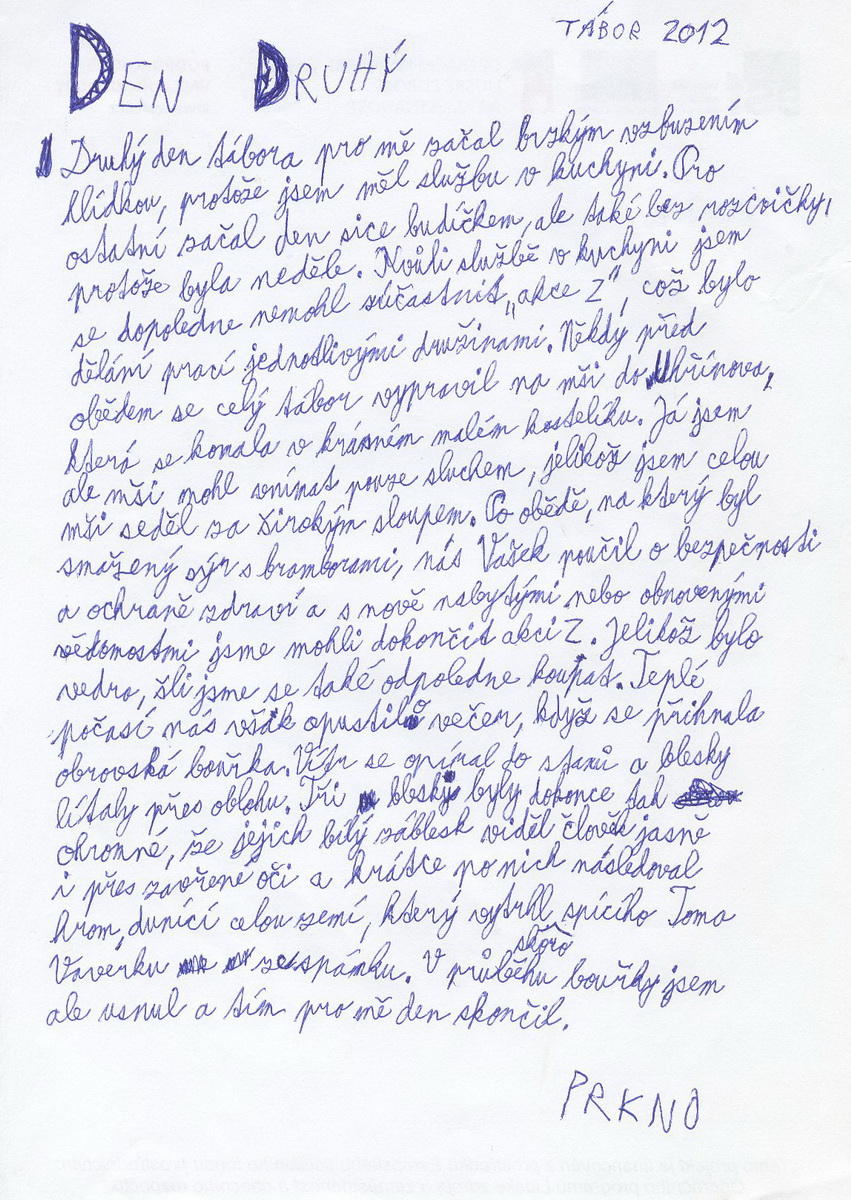 TÁBOR 2012
DEN DRUHÝ
Druhý den tábora pro mě začal brzkým vzbuzením
hlídkou, protože jsem měl službu v kuchyni. Pro
ostatní začal den sice budíčkem, ale také bez rozcvičky,
protože byla neděle. Kvůli službě v kuchyni jsem
se dopoledne nemohl zúčastnit „akce Z", což bylo
dělání prací jednotlivými družinami. Někdy před
obědem se celý tábor vypravil na mši do Uhřínova,
která se konala v krásném malém kostelíku. Já jsem
ale mši mohl vnímat pouze sluchem, jelikož jsem celou
mši seděl za širokým sloupem. Po obědě, na který byl
smažený sýr s bramborami, nás Vašek poučil o bezpečnosti
a ochraně zdraví a s nově nabytými nebo obnovenými
vědomostmi jsme mohli dokončit akci Z. Jelikož bylo
vedro, šli jsme se také odpoledne koupat. Teplé
počasí nás však opustilo večer, když se přihnala
obrovská bouřka. Vítr se opíral do stanů a blesky
lítaly přes oblohu. Tři blesky byly dokonce tak
ohromné, že jejich bílý záblesk viděl člověk jasně
i přes zavřené oči a krátce po nich následoval
hrom, dunící celou zemí, který vytrhl spícího Toma
Vaverku ze spánku. V průběhu skoro bouřky jsem
ale usnul a tím pro mě den skončil.
PRKNO